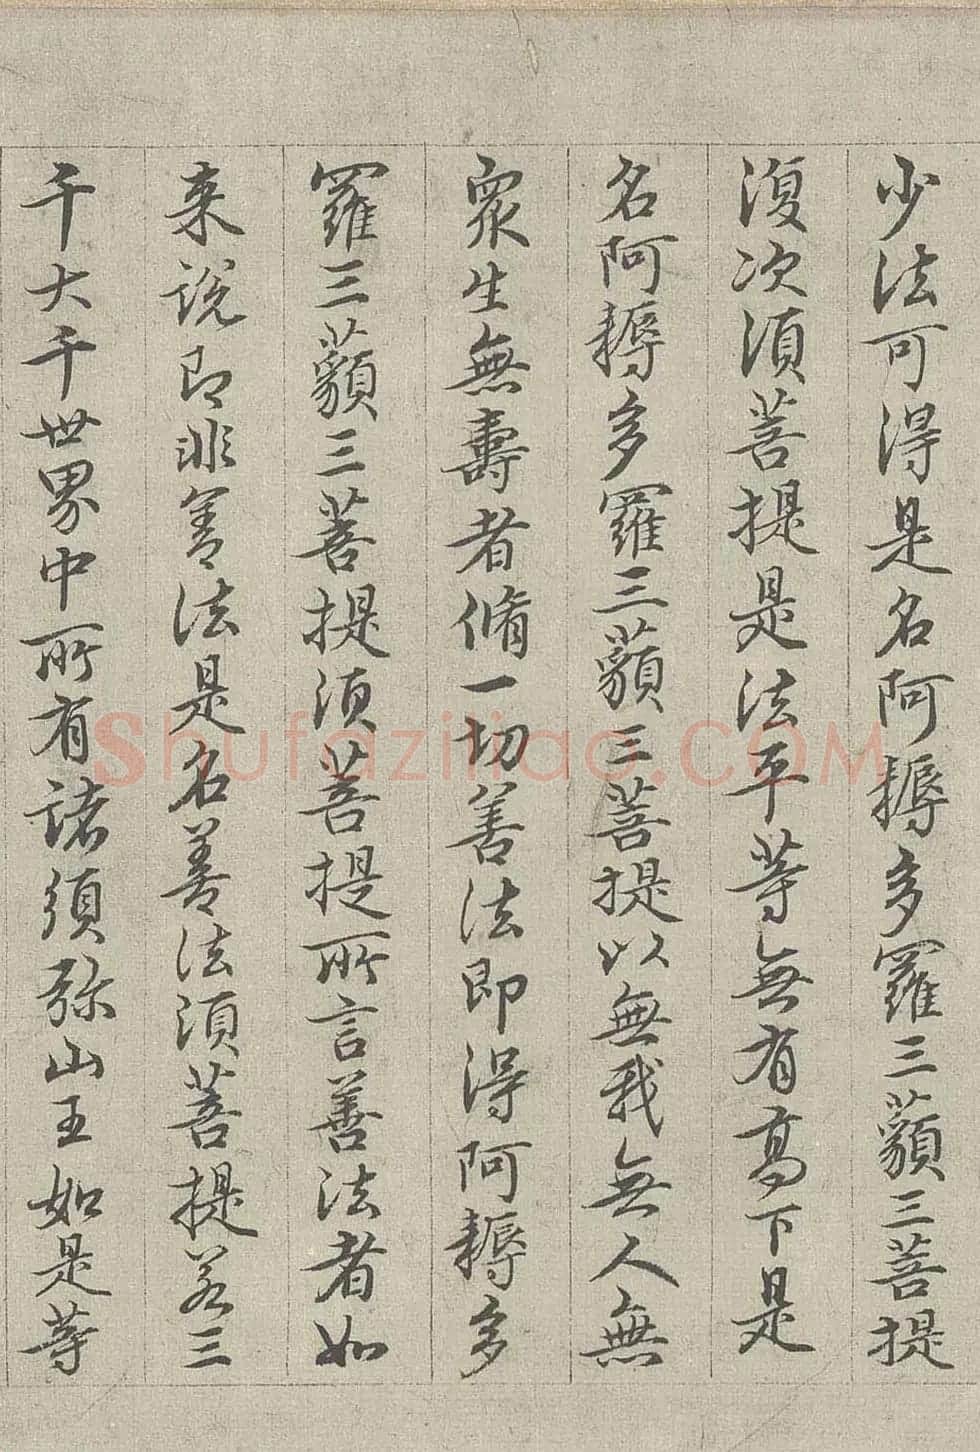 少法可得是名阿耨多羅三藐三菩提
復次須菩提是法平等無有高下是
名阿耨多羅三藐三菩提以無我無人無
眾生無壽者脩一切善法即得阿耨多
羅三藐三菩提須菩提所言善法者如
来說即非善法是名善法須菩提若三
千大千世界中所有諸須弥山王如是等
shufaziliao.COM